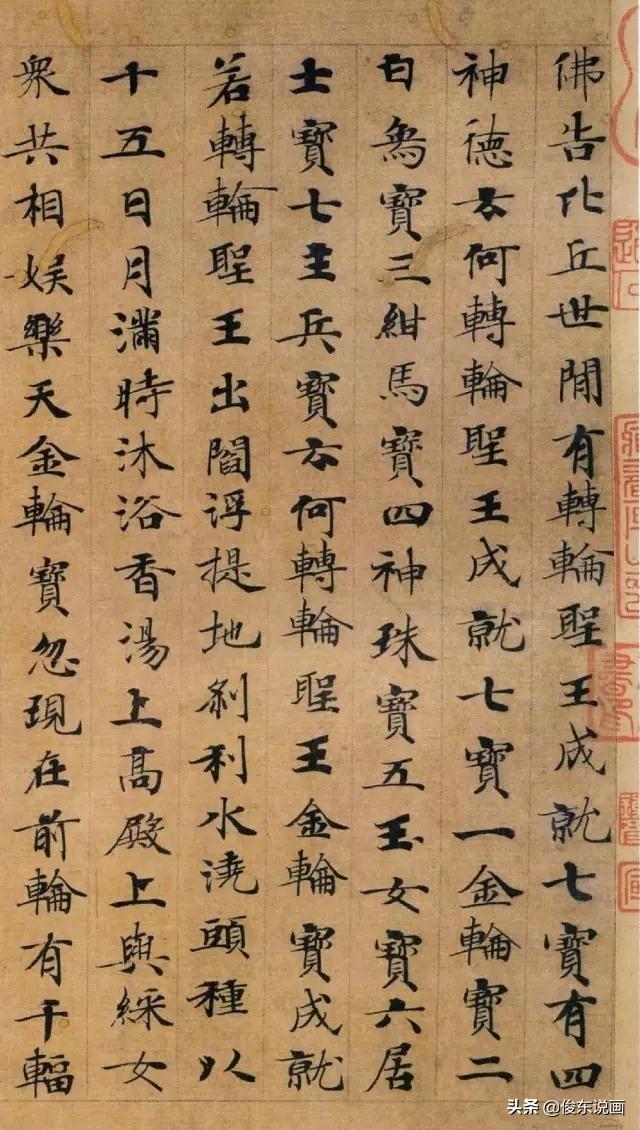 佛告比丘世間有轉輪聖王成就七寶有四
神德云何轉輪聖王成就七寶一金輪寶二
白象寶三紺馬寶四神珠寶五玉女寶六居
士寶七主兵寶云何轉輪聖王金輪寶成就
若轉輪聖王出閻浮提地剎利水澆頭種以
十五日月滿時沐浴香湯上高殿上與綵女
衆共相娛樂天金輪寶忽現在前輪有千輻
头条 @俊东说画